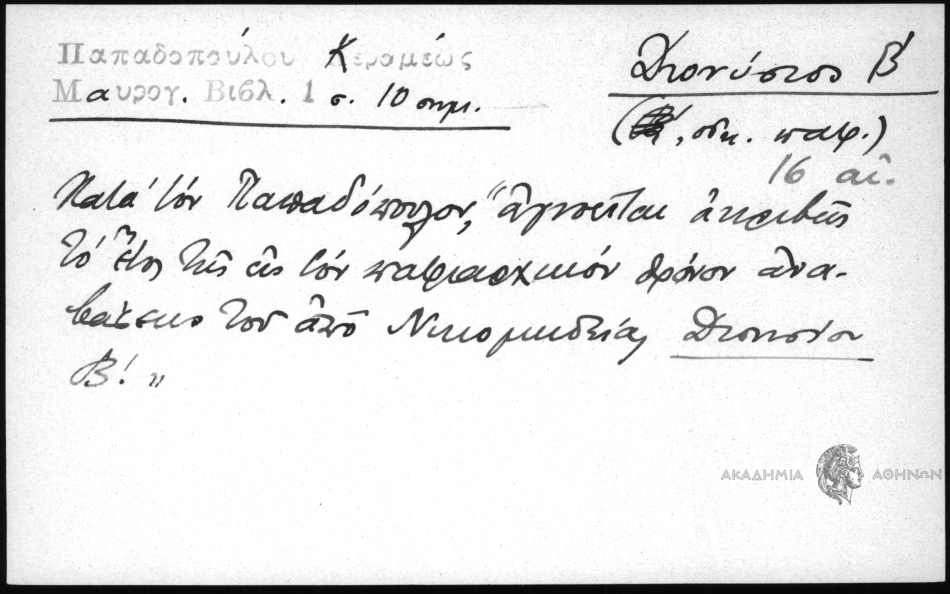 Παπαδοπούλου Κεραμέως
Μαυρογ. Βιβλ. 1 σ. 10 σημ.
Διονύσιος Β΄
(Β΄, οἰκ. πατρ.)
16 αἰ.
Κατά τόν Παπαδόπουλον, "ἀγνοεῖται ἀκριβῶς
τό ἔτος τῆς εἰς τόν πατριαρχικόν θρόνον ἀνα-
βάσεως τοῦ ἀπό Νικομηδείας Διονυσίου
Β΄. "
ΑΚΑΔΗΜΙΑ ΑΘΗΝΩΝ